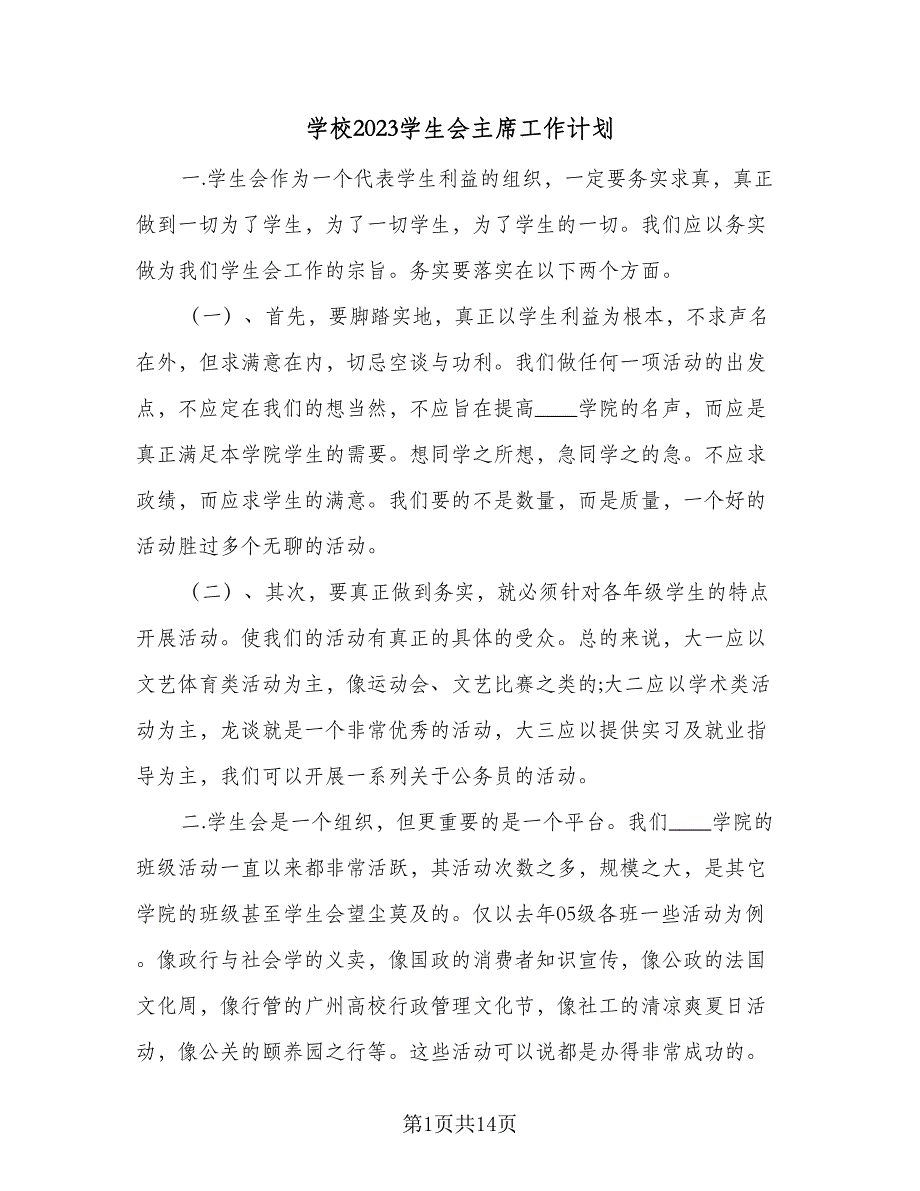 学校2023学生会主席工作计划
一.学生会作为一个代表学生利益的组织，一定要务实求真，真正
做到一切为了学生，为了一切学生，为了学生的一切。我们应以务实
做为我们学生会工作的宗旨。务实要落实在以下两个方面。
（一）、首先，要脚踏实地，真正以学生利益为根本，不求声名
在外，但求满意在内，切忌空谈与功利。我们做任何一项活动的出发
点，不应定在我们的想当然，不应旨在提高____学院的名声，而应是
真正满足本学院学生的需要。想同学之所想，急同学之的急。不应求
政绩，而应求学生的满意。我们要的不是数量，而是质量，一个好的
活动胜过多个无聊的活动。
（二）、其次，要真正做到务实，就必须针对各年级学生的特点
开展活动。使我们的活动有真正的具体的受众。总的来说，大一应以
文艺体育类活动为主，像运动会、文艺比赛之类的;大二应以学术类活
动为主，龙谈就是一个非常优秀的活动，大三应以提供实习及就业指
导为主，我们可以开展一系列关于公务员的活动。
二.学生会是一个组织，但更重要的是一个平台。我们____学院的
班级活动一直以来都非常活跃，其活动次数之多，规模之大，是其它
学院的班级甚至学生会望尘莫及的。仅以去年05级各班一些活动为例
。像政行与社会学的义卖，像国政的消费者知识宣传，像公政的法国
文化周，像行管的广州高校行政管理文化节，像社工的清凉爽夏日活
动，像公关的颐养园之行等。这些活动可以说都是办得非常成功的。
第1页共14页